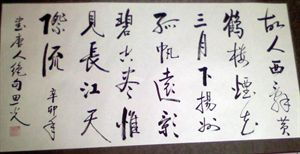 故人西辭黄
鶴樓煙花
三月下揚州
孤帆遠影
碧空尽惟
見長江天
際流 辛卯年
唐人绝句